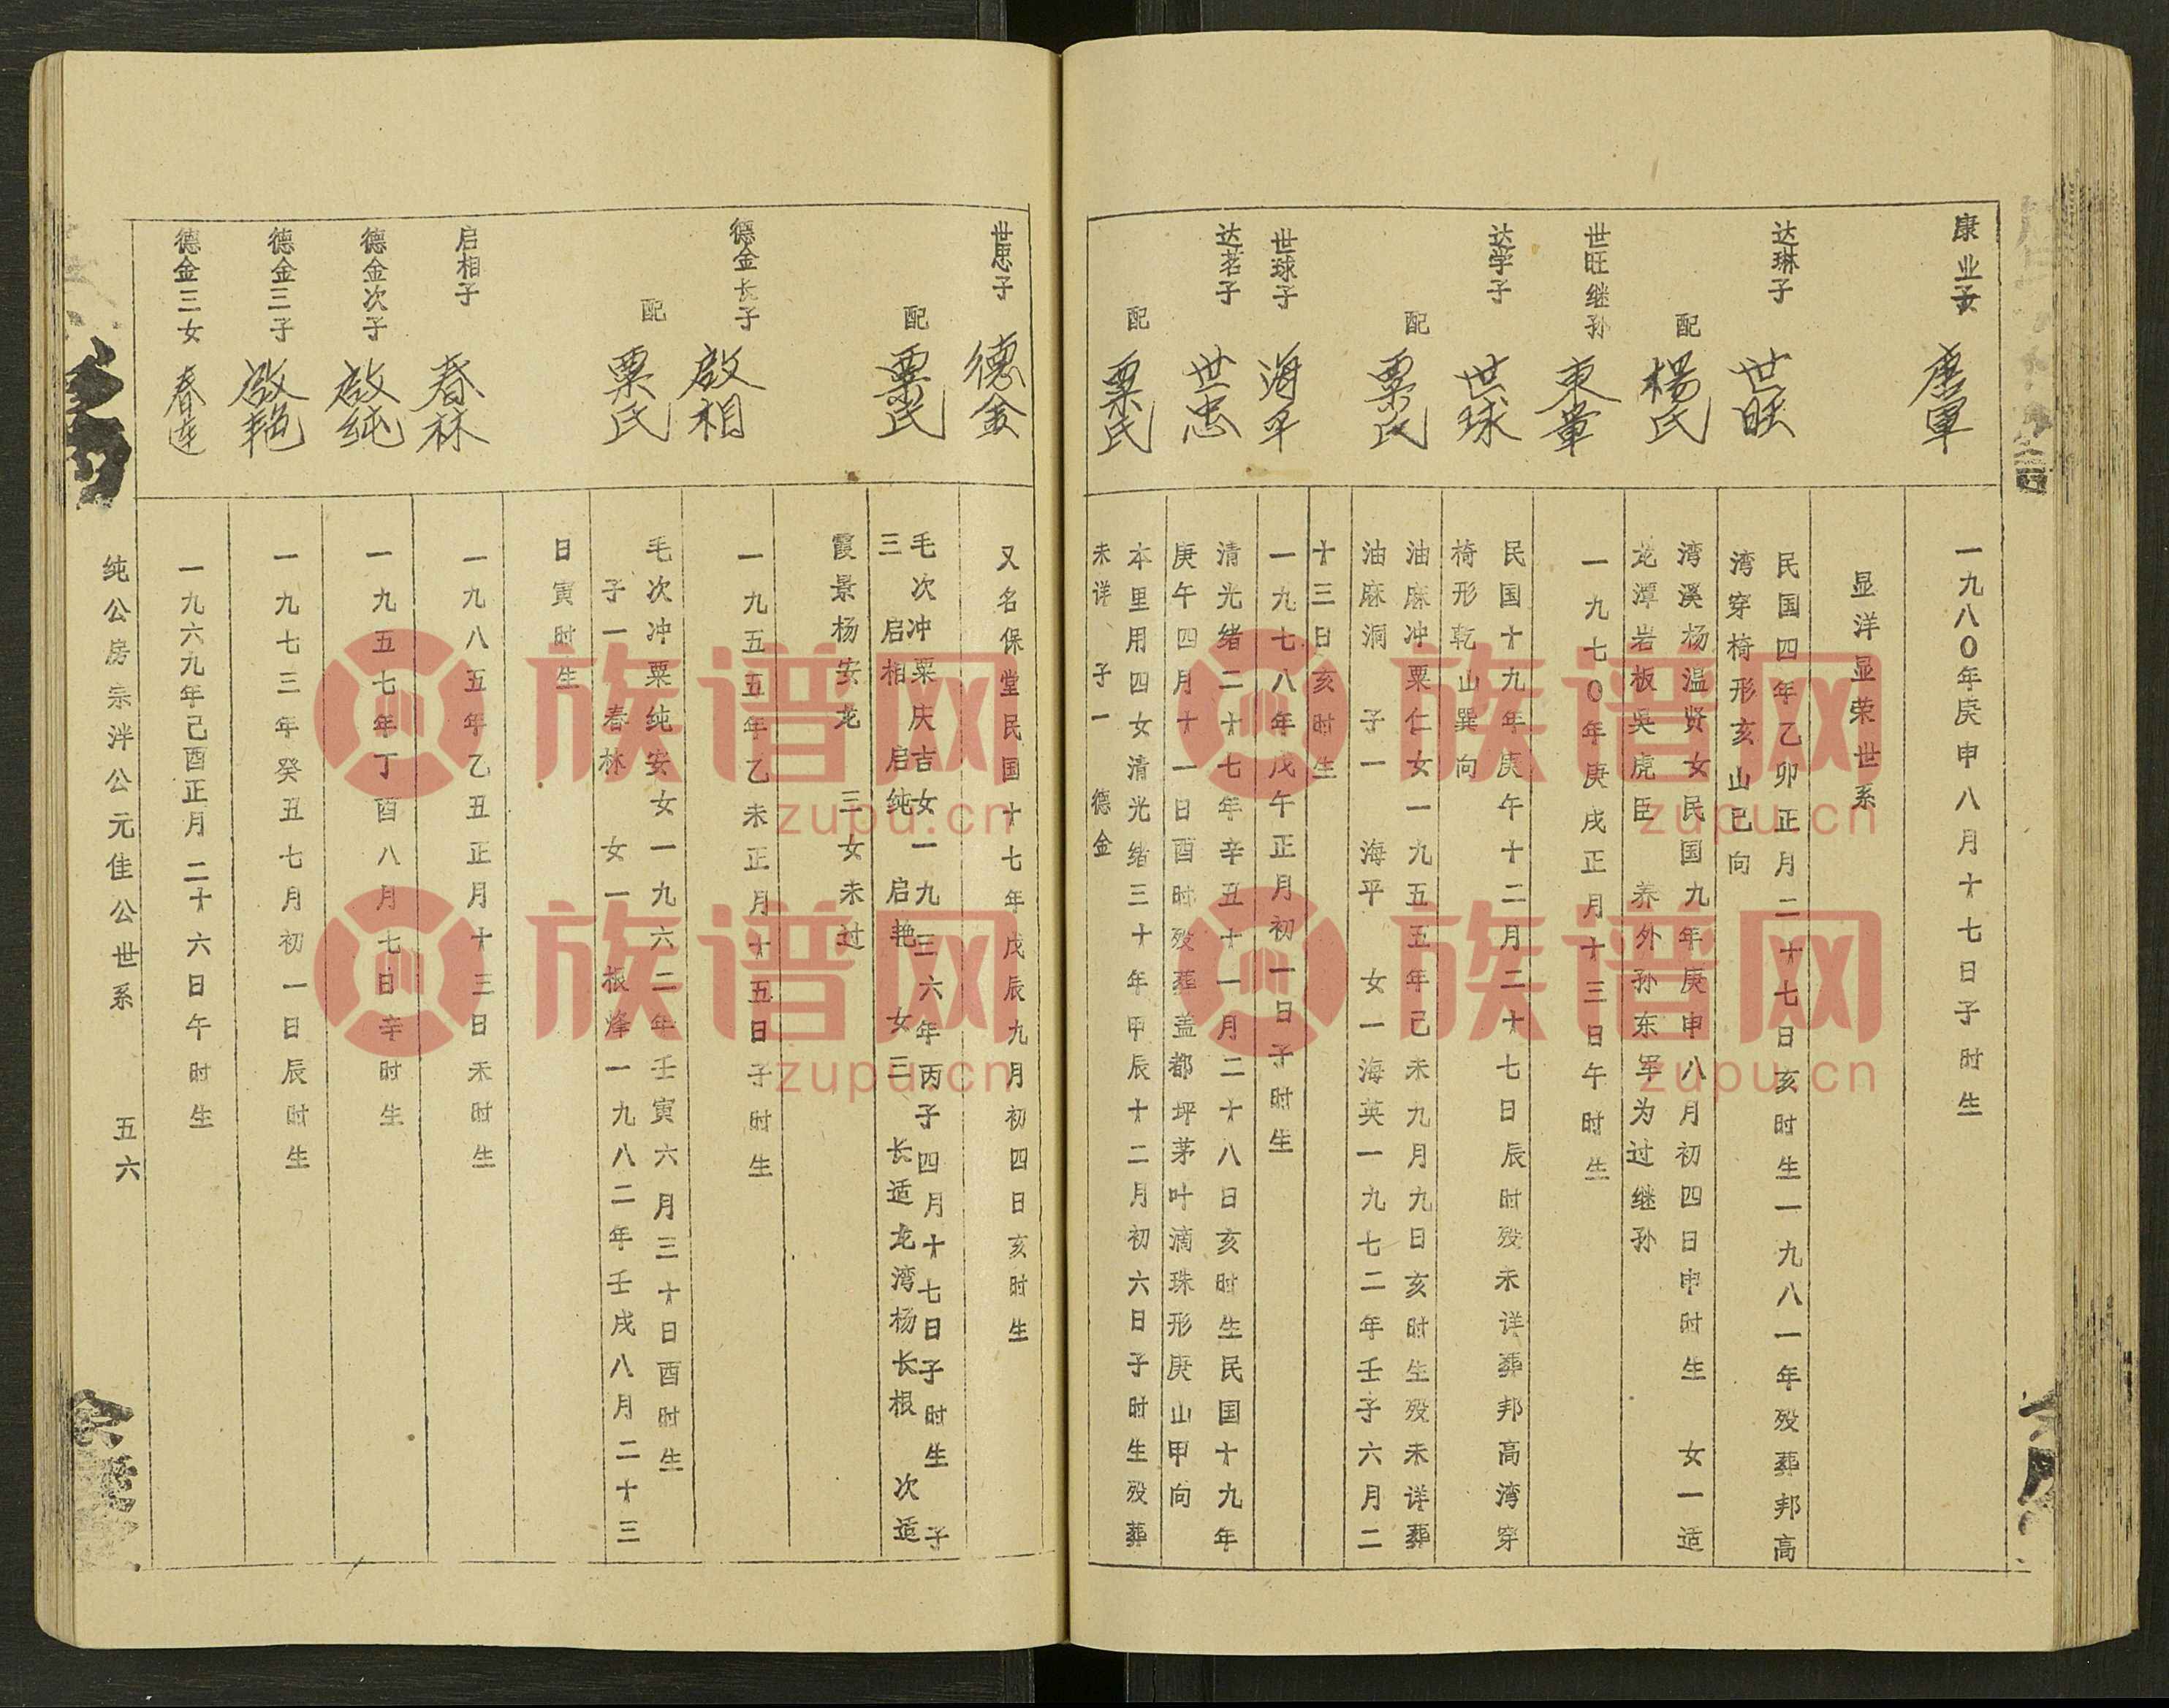 康业子
唐軍
一九八〇年庚申八月十七日子时生
显洋显荣世系
达琳子
世旺
民国四年乙卯正月二十七日亥时生一九八一年殁葬邦高
湾穿椅形亥山巳向
配
楊氏
湾溪杨温贤女民国九年庚申八月初四日申时生 女一适
龙潭岩板吴虎臣 养外孙东军为过继孙
世旺继孙
東軍
一九七〇年庚戌正月十三日午时生
达学子
世球
民国十九年庚午十二月二十七日辰时殁未详葬邦高湾穿
椅形乾山巽向
配
粟氏
油麻冲粟仁女一九五五年己未九月九日亥时生殁未详葬
油麻洞 子一 海平 女一海英一九七二年壬子六月二
十三日亥时生
世球子
海平
一九七八年戊午正月初一日子时生
达茗子
世忠
清光绪二十七年辛丑十一月二十八日亥时生民国十九年
庚午四月十一日酉时殁葬盖都坪茅叶滴珠形庚山甲向
配
粟氏
本里用四女清光绪三十年甲辰十二月初六日子时生殁葬
未详 子一 德金
世忠子
德金
又名保堂民国十七年戊辰九月初四日亥时生
配
粟氏
毛次冲粟庆吉女一九三六年丙子四月十七日子时生 子
三 启相 启纯 启艳 女三 长适龙湾杨长根 次适
霞景杨安龙 三女未过
德金长子
啟相
一九五五年乙未正月十五日子时生
配
粟氏
毛次冲粟纯安女一九六二年壬寅六月三十日酉时生
子一 春林 女一 根烽一九八二年壬戌八月二十三
日寅时生
启相子
春林
一九八五年乙丑正月十三日未时生
德金次子
啟纯
一九五七年丁酉八月七日辛时生
德金三子
啟艳
一九七三年癸丑七月初一日辰时生
德金三女
春连
一九六九年己酉正月二十六日午时生
纯公房宗泮公元佳公世系 五六
族谱网
zupu.cn
族谱网
zupu.cn
族谱网
zupu.cn
族谱网
zupu.cn